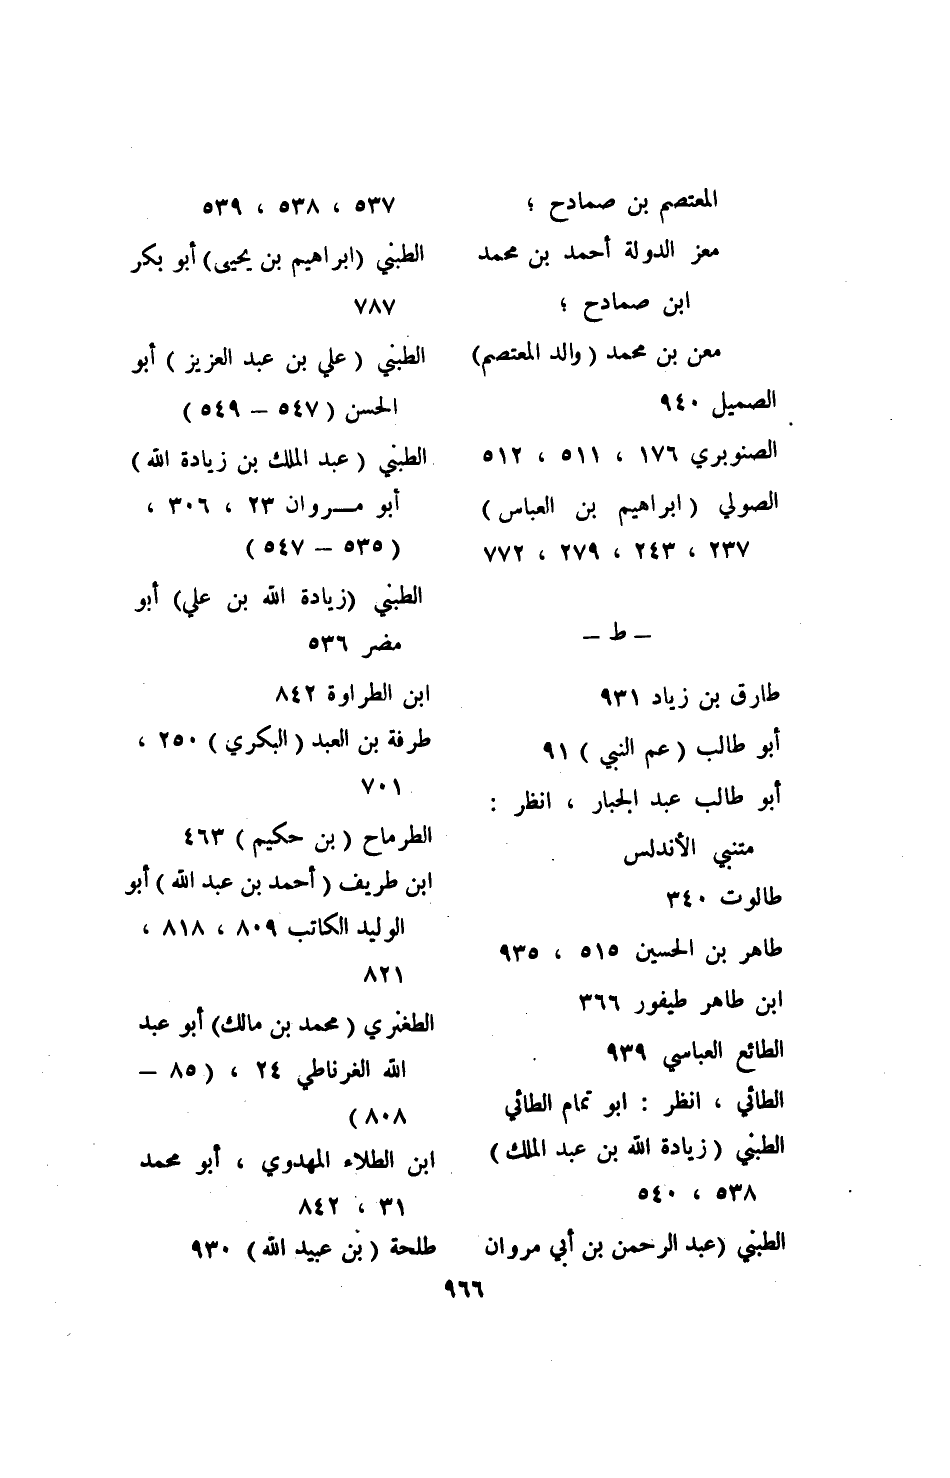 المعتصم بن صمادح ؛
معز الدولة أحمد بن محمد
ابن صمادح ؛
معن بن محمد ( والد المعتصم)
الصميل ٩٤٠
الصنوبري ١٧٦ ، ٥١١ ، ٥١٢
الصولي ( ابراهيم بن العباس )
٢٣٧ ، ٢٤٣ ، ٢٧٩ ، ٧٧٢
– ط –
طارق بن زياد ٩٣١
أبو طالب ( عم النبي ) ٩١
أبو طالب عبد الجبار ، انظر :
متنبي الأندلس
طالوت ٣٤٠
طاهر بن الحسين ٥١٥ ، ٩٣٥
ابن طاهر طيفور ٣٦٦
الطائع العباسي ٩٣٩
الطائي ، انظر : ابو تمام الطائي
الطبني ( زيادة الله بن عبد الملك )
٥٣٨ ، ٥٤٠
الطبني (عبد الرحمن بن أبي مروان
٥٣٧ ، ٥٣٨ ، ٥٣٩
الطبني (ابراهيم بن يحيى) أبو بكر
٧٨٧
الطبني ( علي بن عبد العزيز ) أبو
الحسن ( ٥٤٧ – ٥٤٩ )
الطبني ( عبد الملك بن زيادة الله )
أبو مــروان ٢٣ ، ٣٠٦ ،
( ٥٣٥ – ٥٤٧ )
الطبني (زيادة الله بن علي) أبو
مضر ٥٣٦
ابن الطراوة ٨٤٢
طرفة بن العبد ( البكري ) ٢٥٠ ،
٧٠١
الطرماح ( بن حكيم ) ٤٦٣
ابن طريف ( أحمد بن عبد الله ) أبو
الوليد الكاتب ٨٠٩ ، ٨١٨ ،
٨٢١
الطغنري ( محمد بن مالك) أبو عبد
الله الغرناطي ٢٤ ، ( ٨٥ –
٨٠٨ )
ابن الطلاء المهدوي ، أبو محمد
٣١ ، ٨٤٢
طلحة ( بن عبيد الله ) ٩٣٠
٩٦٦